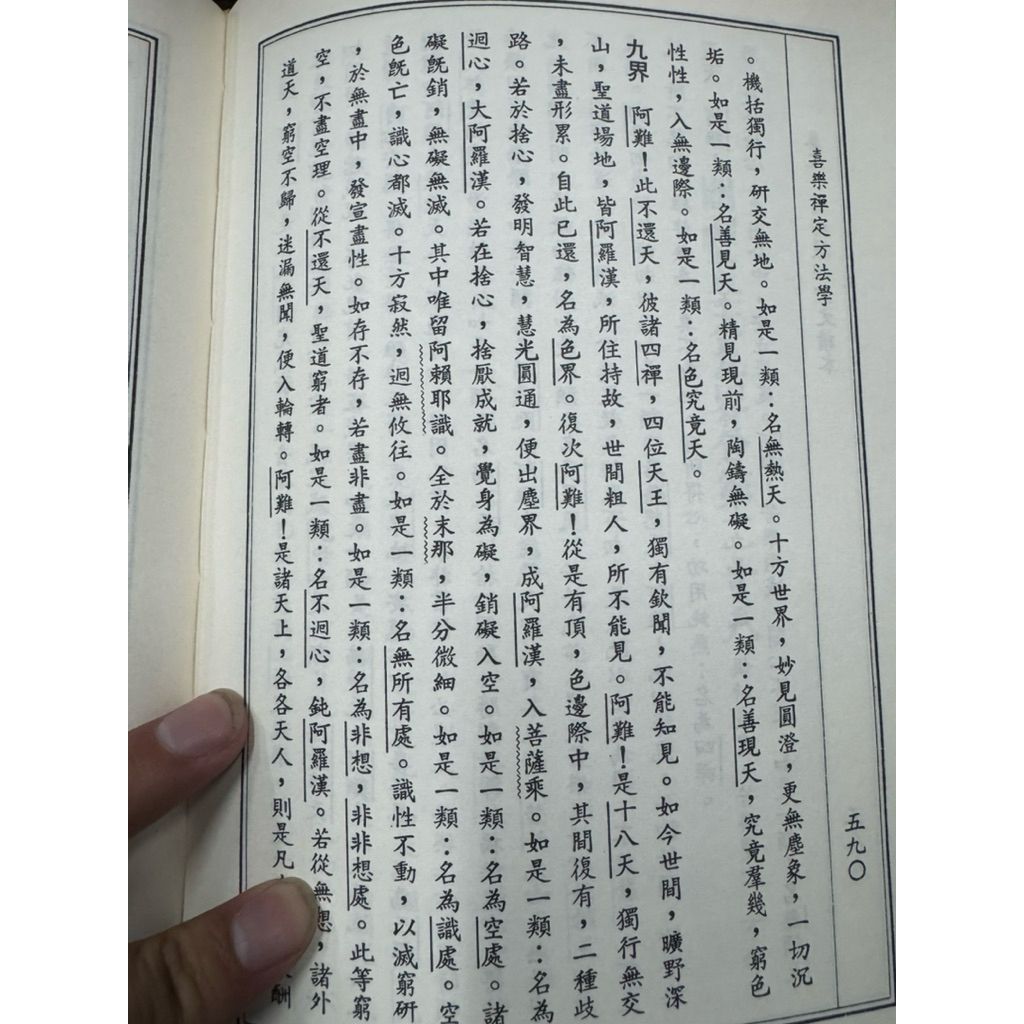 喜樂禪定方法學
五九〇
。機括獨行，研交無地。如是一類：名無熱天。十方世界，妙見圓澄，更無塵象，一切沉
垢。如是一類：名善見天。精見現前，陶鑄無礙。如是一類：名善現天，究竟羣幾，窮色
性性，入無邊際。如是一類：名色究竟天。
九界　阿難！此不還天，彼諸四禪，四位天王，獨有欽聞，不能知見。如今世間，曠野深
山，聖道場地，皆阿羅漢，所住持故，世間粗人，所不能見。阿難！是十八天，獨行無交
，未盡形累。自此已還，名為色界。復次阿難！從是有頂，色邊際中，其間復有，二種歧
路。若於捨心，發明智慧，慧光圓通，便出塵界，成阿羅漢，入菩薩乘。如是一類：名為
迴心，大阿羅漢。若在捨心，捨厭成就，覺身為礙，銷礙入空。如是一類：名為空處。諸
礙既銷，無礙無滅。其中唯留阿賴耶識。全於末那，半分微細。如是一類：名為識處。空
色既亡，識心都滅。十方寂然，迥無攸往。如是一類：名無所有處。識性不動，以滅窮研
，於無盡中，發宣盡性。如存不存，若盡非盡。如是一類：名為非想，非非想處。此等窮
空，不盡空理。從不還天，聖道窮者。如是一類：名不迴心，鈍阿羅漢。若從無想，諸外
道天，窮空不歸，迷漏無聞，便入輪轉。阿難！是諸天上，各各天人，則是凡酬